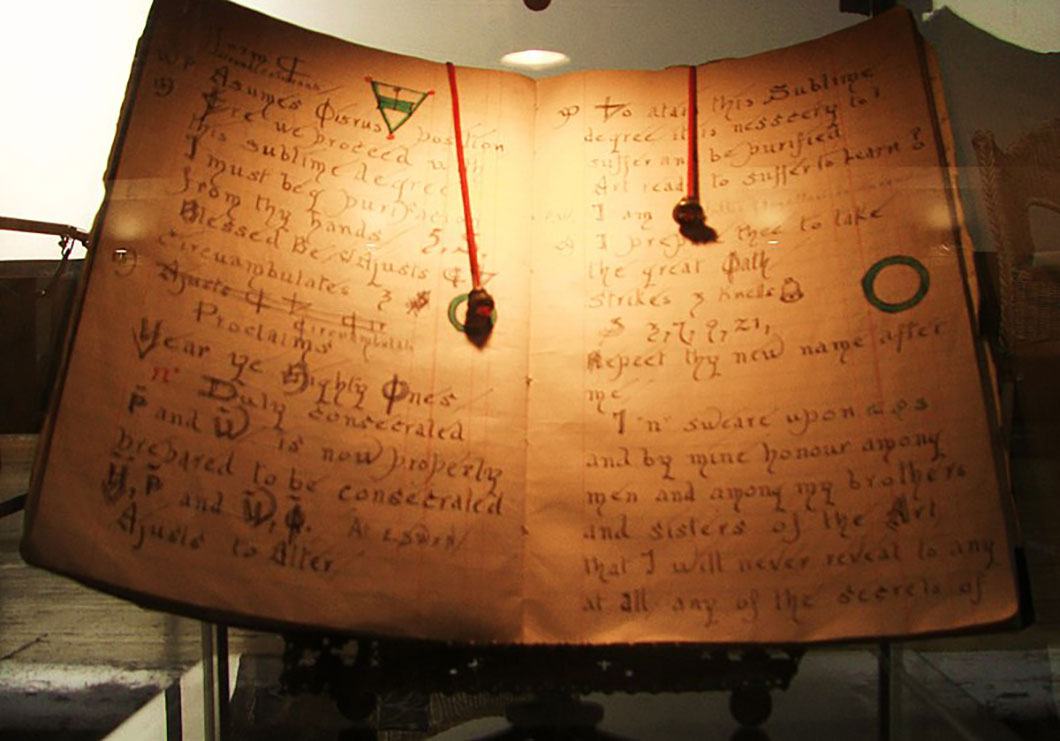 Asumes Osirus position
Ere we proceed with
this sublime degree
I must beg purification
from thy hands
Blessed Be Ajusts
circuambulates 3
Ajusts
Proclaims circuambulate
Hear ye Mighty Ones
"n" Duly consecrated
P and W is now properly
prepared to be consecrated
H, P and W, Φ.
Ajusts to Alter
To atain this Sublime
degree it is nesscery to
suffer and be purified
Art ready to suffer to Learn ?
I am
I thee to take
the great Oath
Strikes 3 Knells
S 3, 7, 9, 21,
Repeet thy new name after
me
I "n" sweare upon
and by mine honour among
men and among my brothers
and sisters of the Art
that I will never reveal to any
at all any of the secrets of